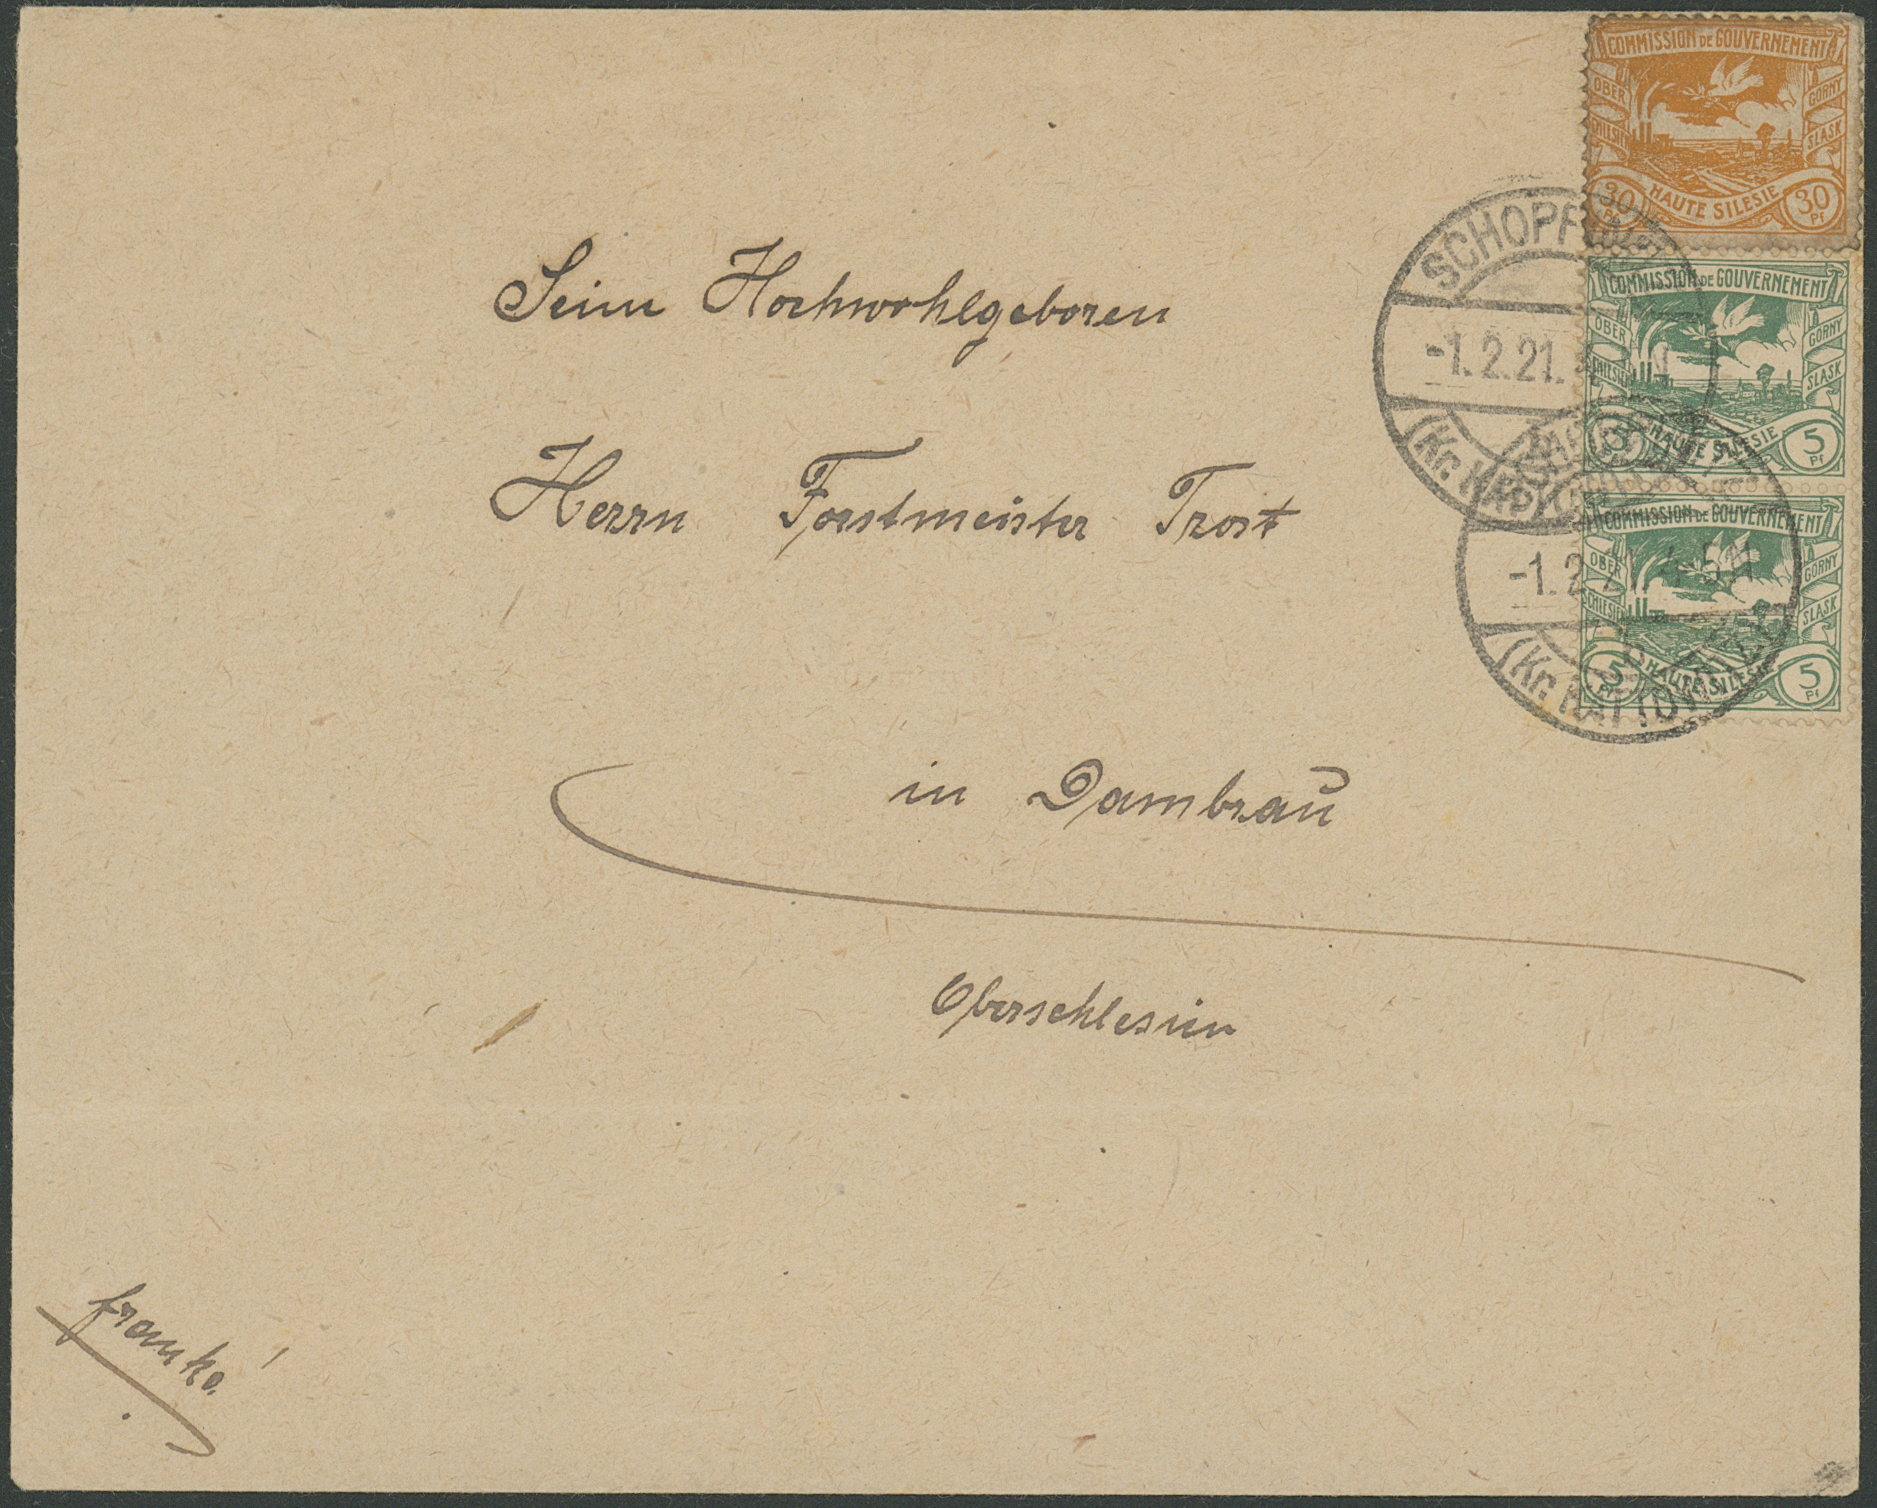 COMMISSION DE GOUVERNEMENT
OBER SCHLESIEN
GORNY SLASK
30 Pf
HAUTE SILESIE
30 Pf
COMMISSION DE GOUVERNEMENT
OBER SCHLESIEN
GORNY SLASK
HAUTE SILESIE
5 Pf
COMMISSION DE GOUVERNEMENT
OBER SCHLESIEN
GORNY SLASK
5 Pf
HAUTE SILESIE
5 Pf
-1.2.21.
(Kr. KATTOWITZ)
-1.2.21. 4-5N
(Kr. KATTOWITZ)
Seiner Hochwohlgeboren
Herrn Forstmeister Trost
in Dambrau
Oberschlesien
franko!